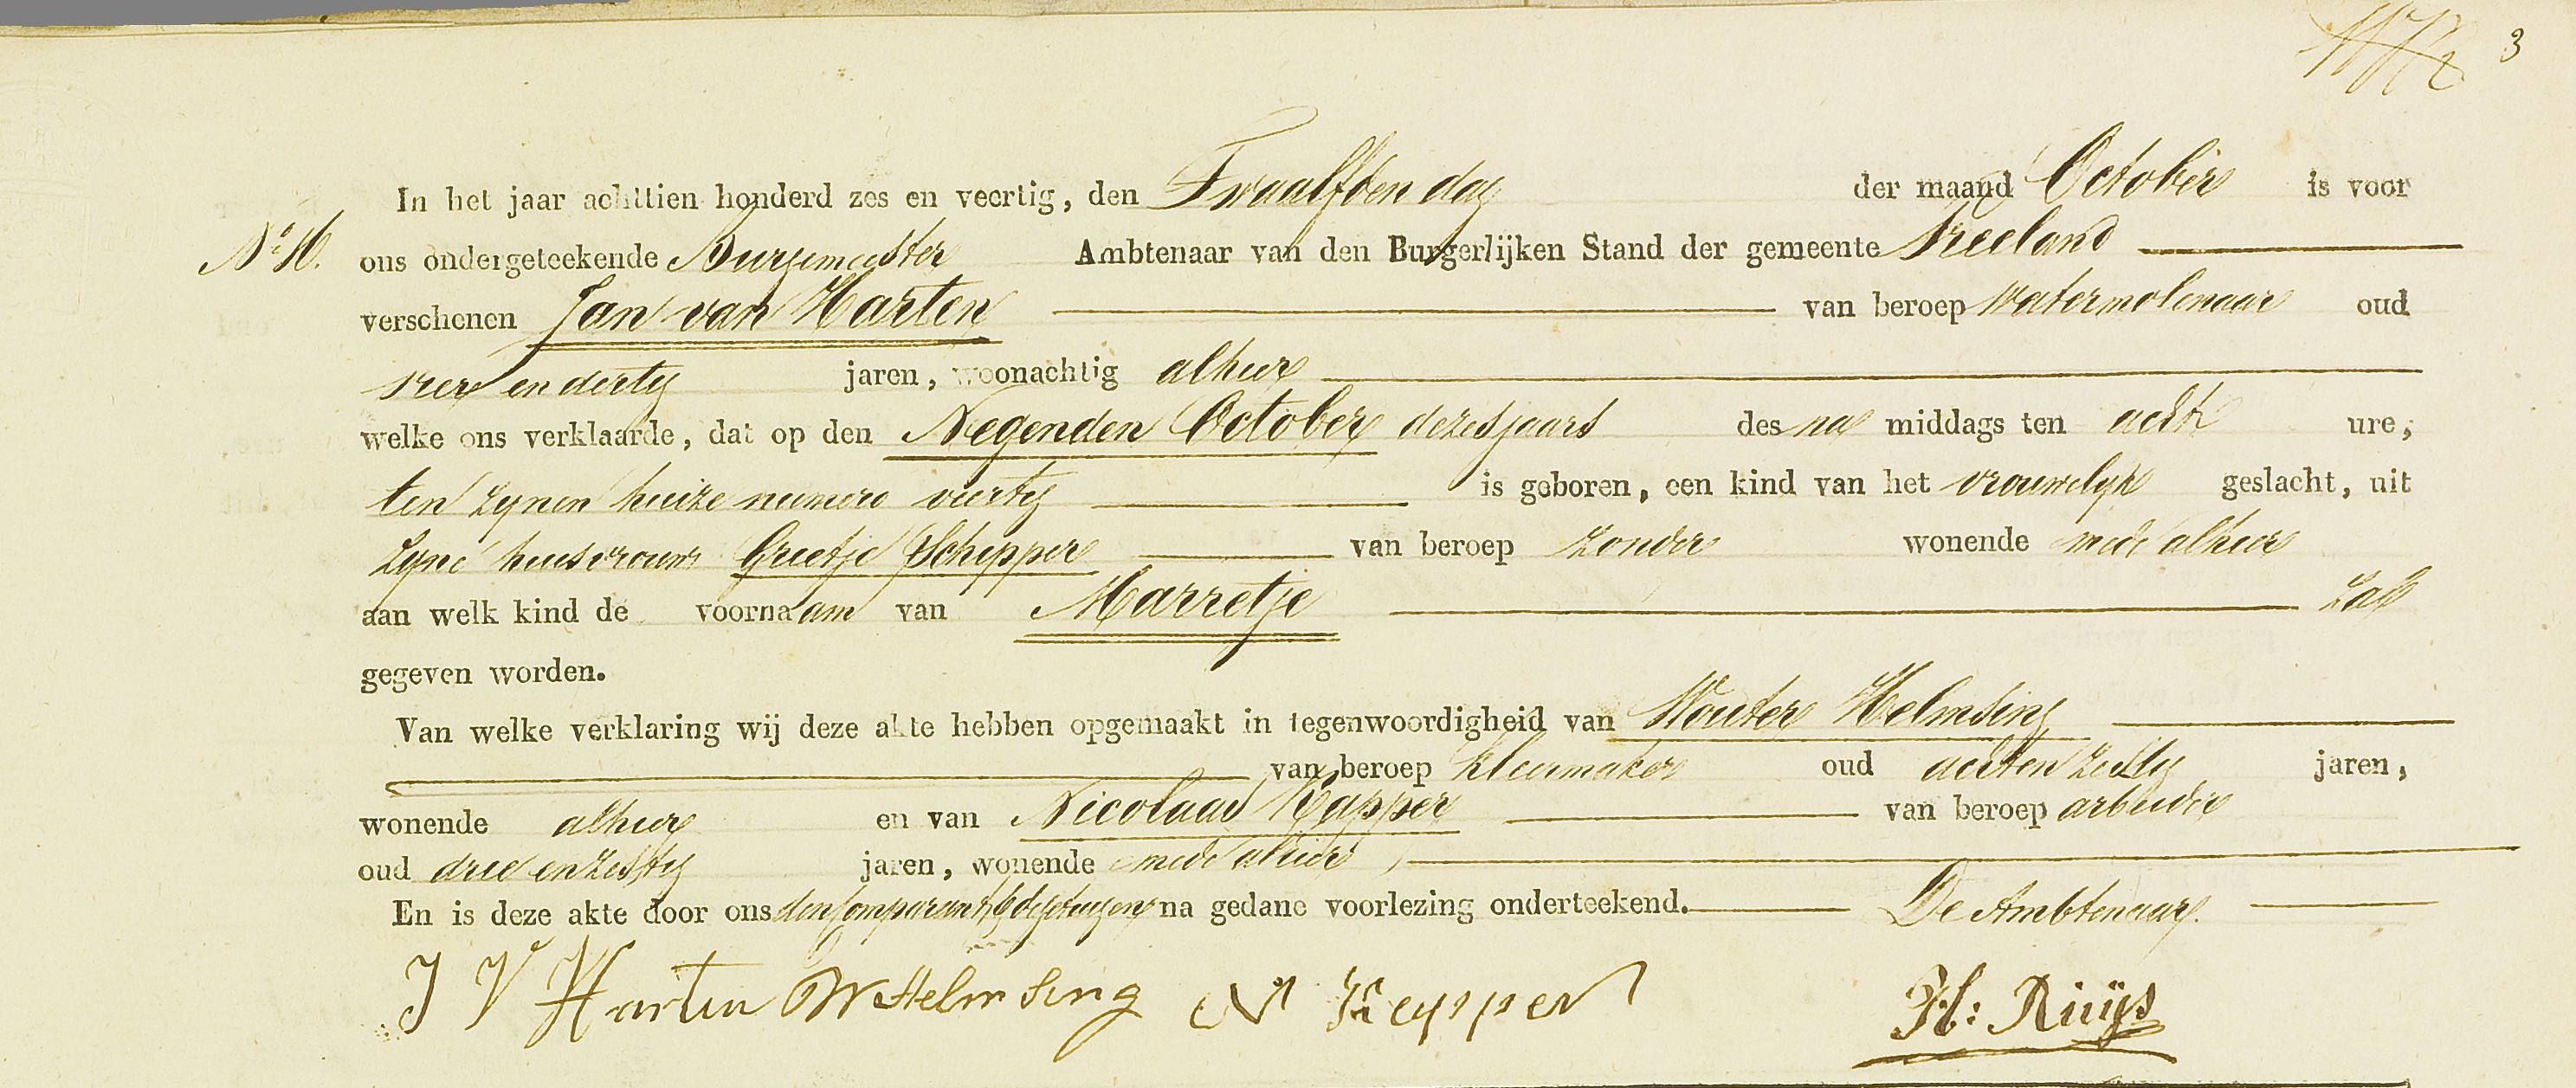 3
In het jaar achttien honderd zes en veertig, den Twaalfden dag der maand October is voor
No. 16. ons ondergeteekende Burgemeester Ambtenaar van den Burgerlijken Stand der gemeente Vreeland
verschenen Jan van Harten van beroep Watermolenaar oud
vier en dertig jaren, woonachtig alhier
welke ons verklaarde, dat op den Negenden October dezes jaars des na middags ten acht ure,
ten zynen huize numero veertig is geboren, een kind van het vrouwelyk geslacht, uit
zyne huisvrouw Grietje Schipper van beroep zonder wonende mede alhier
aan welk kind de voornaam van Marretje zal
gegeven worden.
Van welke verklaring wij deze akte hebben opgemaakt in tegenwoordigheid van Wouter Helmsing
van beroep kleermaker oud acht en zestig jaren,
wonende alhier en van Nicolaas Kapper van beroep arbeider
oud drie en zestig jaren, wonende mede alhier
En is deze akte door ons den Comparant & de getuigen na gedane voorlezing onderteekend. De Ambtenaar.
J V Harten W Helmsing N Kepper H: Ruijs